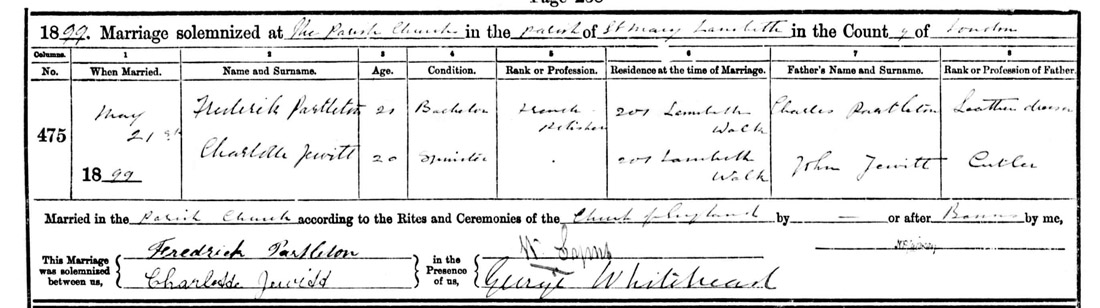 1899. Marriage solemnized at The Parish Church in the parish of St Mary Lambeth in the County of London
Columns. 1 2 3 4 5 6 7 8
No. When Married. Name and Surname. Age. Condition. Rank or Profession. Residence at the time of Marriage. Father's Name and Surname. Rank or Profession of Father.
475
May 21st 1899
Frederick Partleton 21 Bachelor French Polisher 201 Lambeth Walk Charles Partleton Leather dresser
Charlotte Jewitt 20 Spinster 201 Lambeth Walk John Jewitt Cutler
Married in the Parish Church according to the Rites and Ceremonies of the Church of England by — or after Banns by me,
This Marriage was solemnized between us,
Fredrick Partleton
Charlotte Jewitt
in the Presence of us,
W
George Whitehead